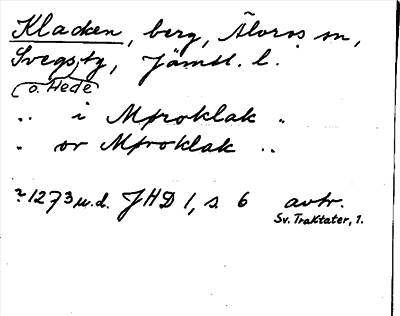 Klacken, berg, Älvros sn,
Svegs tg, Jämtl. l.
o. Hede
.. i Mproklak ..
. or Mproklak ..
?1273 u.d. JHD 1, s. 6 avtr.
Sv. Traktater, 1.